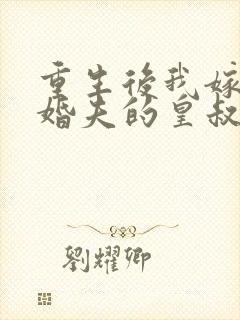 重生後我嫁
婚夫的皇叔
劉耀卿